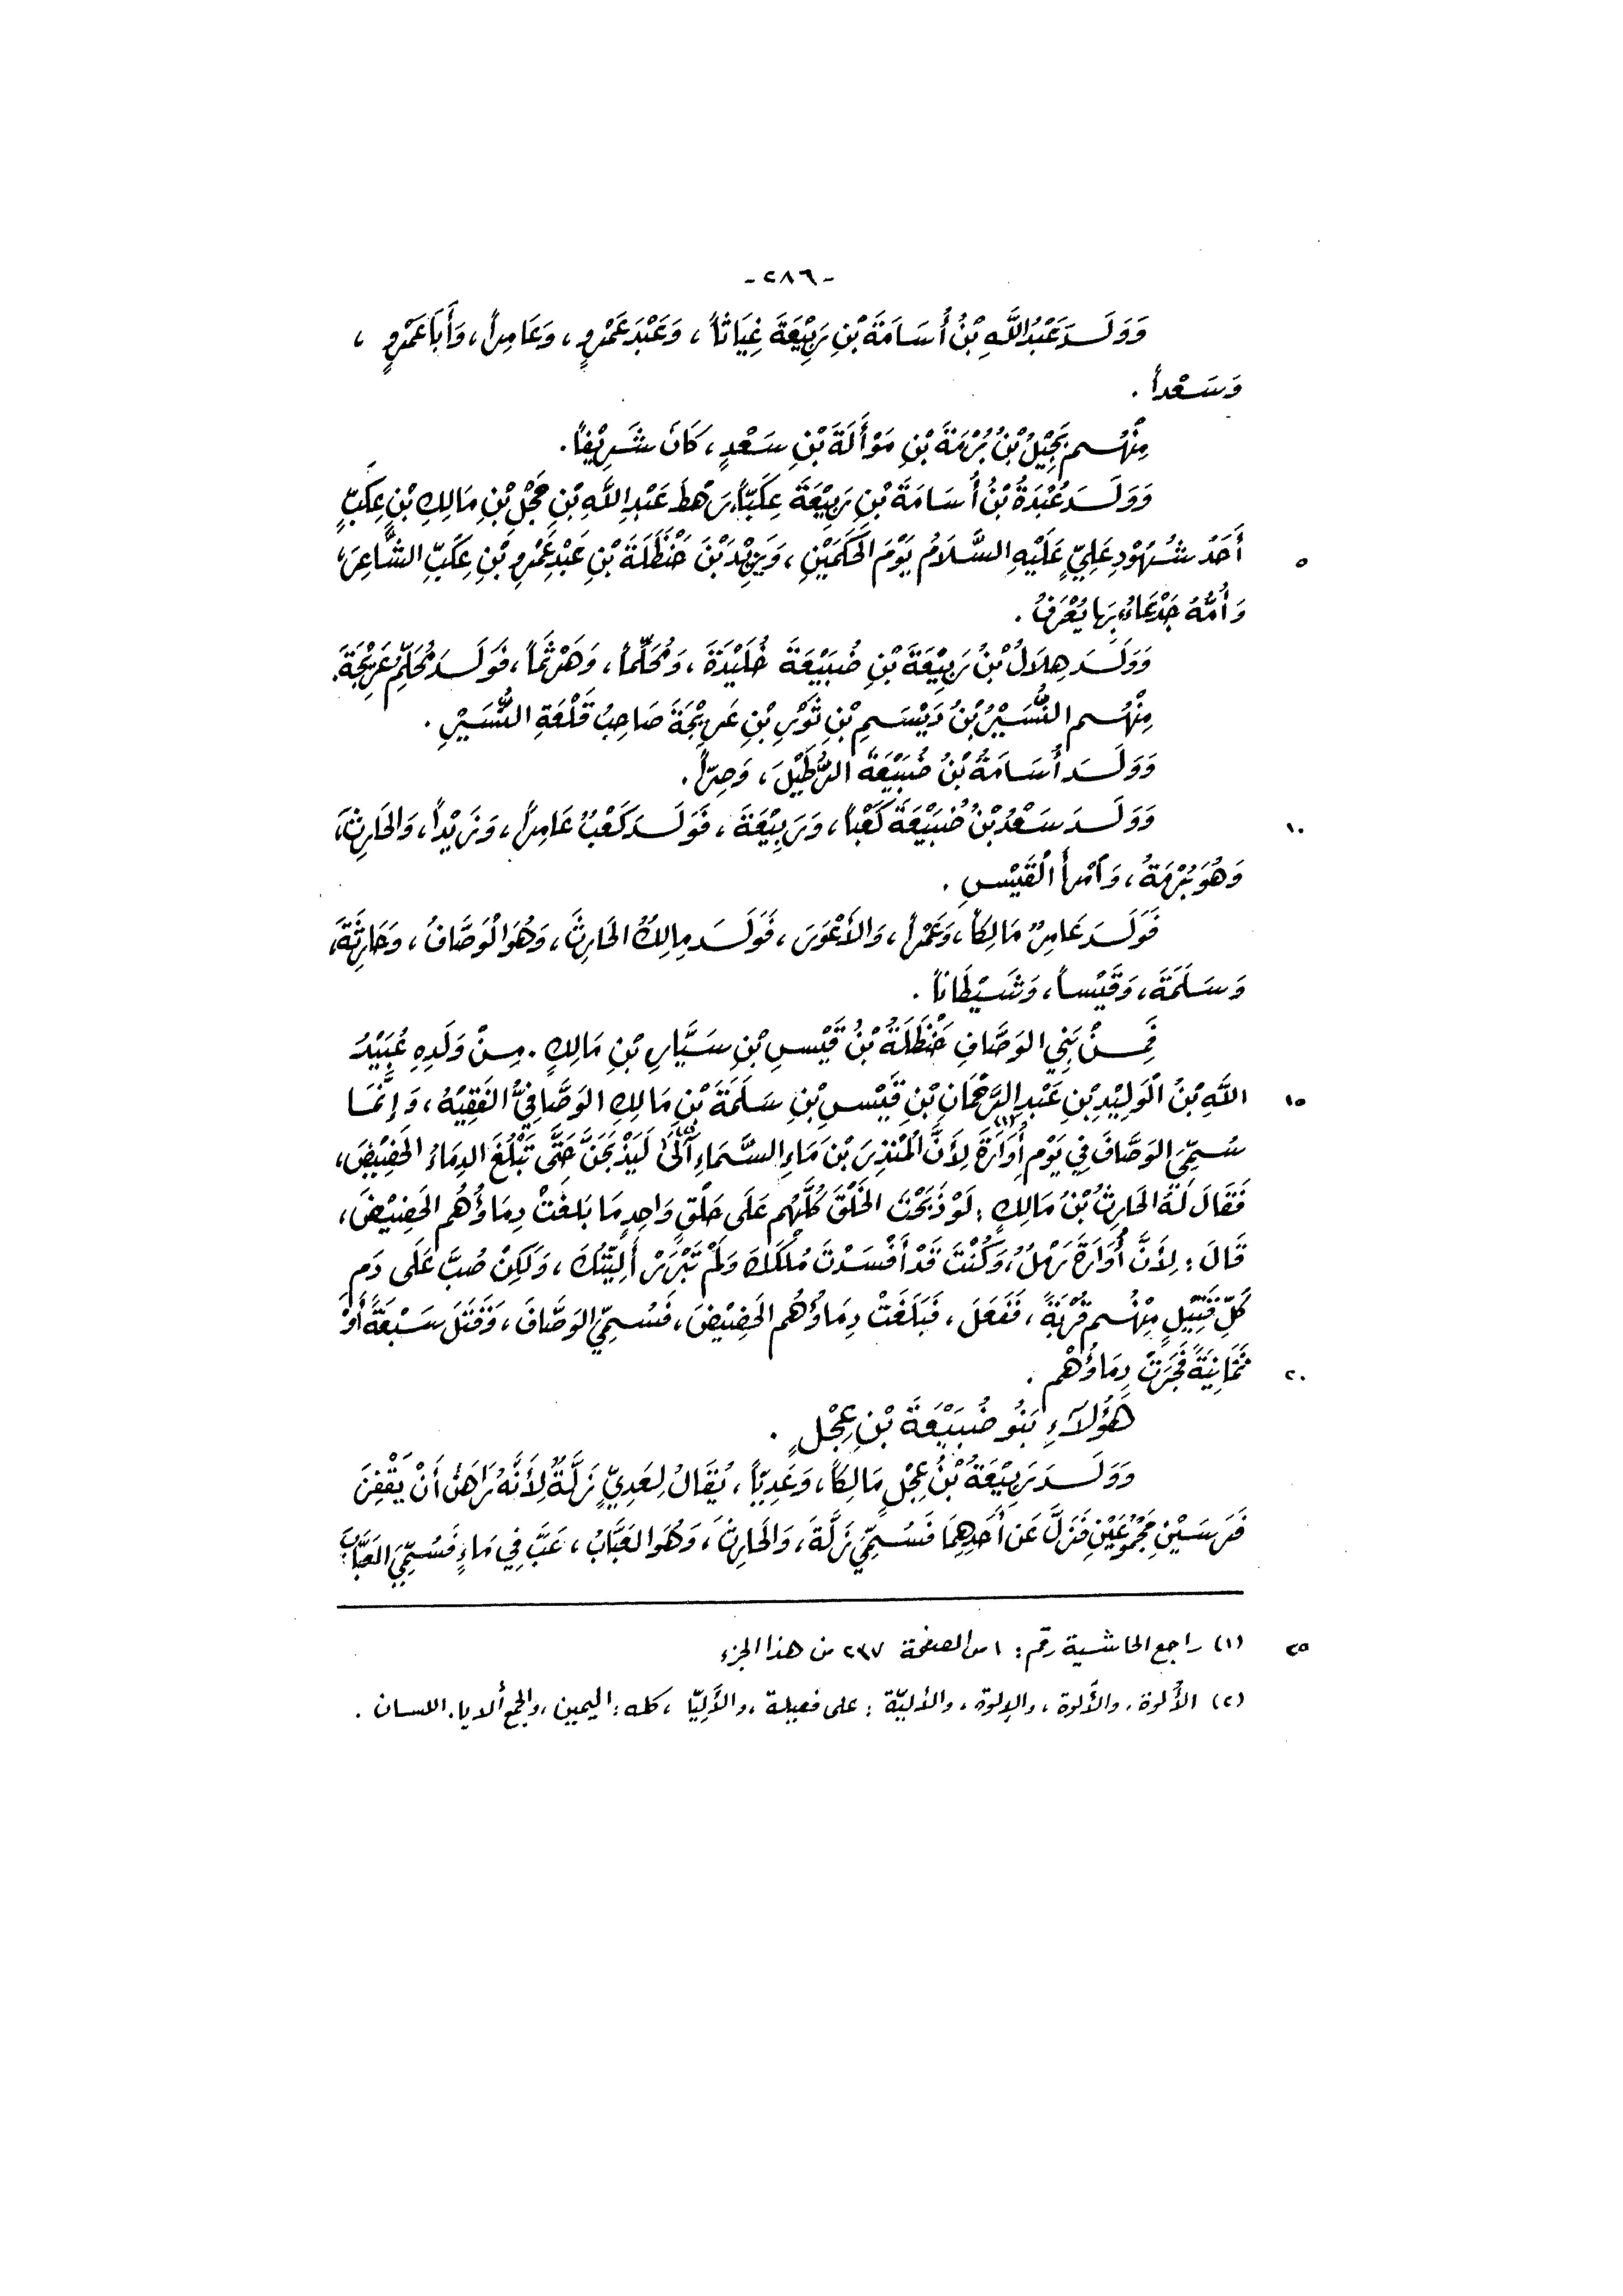 -٢٨٦-
وَوَلَدَ عَبْدُ اللَّهِ بْنُ أُسَامَةَ بْنِ رَبِيْعَةَ غِيَاثاً، وَعَبْدَ عَمْرٍو، وَعَامِراً، وَأَبَا عَمْرٍو،
وَسَعْداً.
مِنْهُم بَجِيْلُ بْنُ بُرْمَةَ بْنِ مَوْأَلَةَ بْنِ سَعْدٍ، كَانَ شَرِيْفاً.
وَوَلَدَ عُبْدَةُ بْنُ أُسَامَةَ بْنِ رَبِيْعَةَ عِكَبّاً، رَهْطَ عَبْدِ اللَّهِ بْنِ حَجْلِ بْنِ مَالِكِ بْنِ عِكَبٍّ
٥ أَحَدُ شُهُوْدِ عَلِيٍّ عَلَيْهِ السَّلَامُ يَوْمَ الحَكَمَيْنِ، وَيَزِيْدَ بْنَ حَنْظَلَةَ بْنِ عَبْدِ عَمْرِو بْنِ عِكَبِّ الشَّاعِرَ،
وَأُمُّهُ جَدْعَاءُ بِهَا يُعْرَفُ.
وَوَلَدَ هِلَالُ بْنُ رَبِيْعَةَ بْنِ ضُبَيْعَةَ خُلَيْدَةَ، وَمُحَلِّماً، وَهَرْثَماً، فَوَلَدَ مُحَلِّمٌ عَرِيْجَةَ.
مِنْهُم النُّسَيْرُ بْنُ دَيْسَمِ بْنِ ثَوْرِ بْنِ عَرِيْجَةَ صَاحِبُ قَلْعَةِ النُّسَيْرِ.
وَوَلَدَ أُسَامَةُ بْنُ ضُبَيْعَةَ الرُّطَيْلَ، وَحِرّاً.
١٠ وَوَلَدَ سَعْدُ بْنُ ضُبَيْعَةَ كَعْباً، وَرَبِيْعَةَ، فَوَلَدَ كَعْبٌ عَامِراً، وَزَيْداً، وَالحَارِثَ،
وَهُوَ بُرْمَةُ، وَامْرأَ القَيْسِ.
فَوَلَدَ عَامِرٌ مَالِكاً، وَعَمْراً، وَالأَعْوَرَ، فَوَلَدَ مَالِكٌ الحَارِثَ، وَهُوَ الوَصَّافُ، وَحَارِثَةَ،
وَسَلَمَةَ، وَقَيْساً، وَشَيْطَاناً.
فَمِنْ بَنِي الوَصَّافِ حَنْظَلَةُ بْنُ قَيْسِ بْنِ سَيَّارِ بْنِ مَالِكٍ. مِنْ وَلَدِهِ عُبَيْدُ
١٥ اللَّهِ بْنُ الوَلِيْدِ بْنِ عَبْدِ الرَّحْمَانِ بْنِ قَيْسِ بْنِ سَلَمَةَ بْنِ مَالِكِ الوَصَّافِيُّ الفَقِيْهُ، وَإِنَّمَا
سُمِّيَ الوَصَّافَ فِي يَوْمِ أُوَارَةَ (١) لِأَنَّ المُنْذِرَ بْنَ مَاءِ السَّمَاءِ آلَى (٢) لَيَذْبَحَنَّ حَتَّى تَبْلُغَ الدِمَاءُ الحَضِيْضَ،
فَقَالَ لَهُ الحَارِثُ بْنُ مَالِكٍ: لَوْ ذَبَحْتَ الخَلْقَ كُلَّهُم عَلَى حَلْقٍ وَاحِدٍ مَا بَلَغَتْ دِمَاؤُهُم الحَضِيْضَ،
قَالَ: لِأَنَّ أُوَارَةَ رَمْلٌ، وَكُنْتَ قَدْ أَفْسَدْتَ مُلْكَكَ وَلَمْ تَبْرَرْ أَلِيَّتُكَ، وَلَكِنْ صُبَّ عَلَى دَمِ
كُلِّ قَتِيْلٍ مِنْهُم قُرْبَةً، فَفَعَلَ، فَبَلَغَتْ دِمَاؤُهُم الحَضِيْضَ، فَسُمِّيَ الوَصَّافَ، وَقَتَلَ سَبْعَةً أَوْ
٢٠ ثَمَانِيَةً فَجَرَتْ دِمَاؤُهُمْ.
هَؤُلَاءِ بَنُو ضُبَيْعَةَ بْنِ عِجْلٍ.
وَوَلَدَ رَبِيْعَةُ بْنُ عِجْلٍ مَالِكاً، وَعَدِيّاً، يُقَالُ لِعَدِيٍّ نَزَلَّةٌ لِأَنَّهُ رَاهَنَ أَنْ يَقْفِزَ
فَرَسَيْنِ مَجْمُوْعَيْنِ فَنَزَلَّ عَنْ أَحَدِهِمَا فَسُمِّيَ نَزَلَّةَ، وَالحَارِثَ، وَهُوَ العَبَّابُ، عَبَّ فِي مَاءٍ فَسُمِّيَ العَبَّابَ،
٢٥ (١) راجع الحاشية رقم: ١ من الصفحة ٢٣٧ من هذا الجزء
(٢) الأُلوة، والأَلوة، والإلوة، والألِيّة: على فعيلة، والأَلِيّا، كله: اليمين، والجمع ألايا. اللسان.